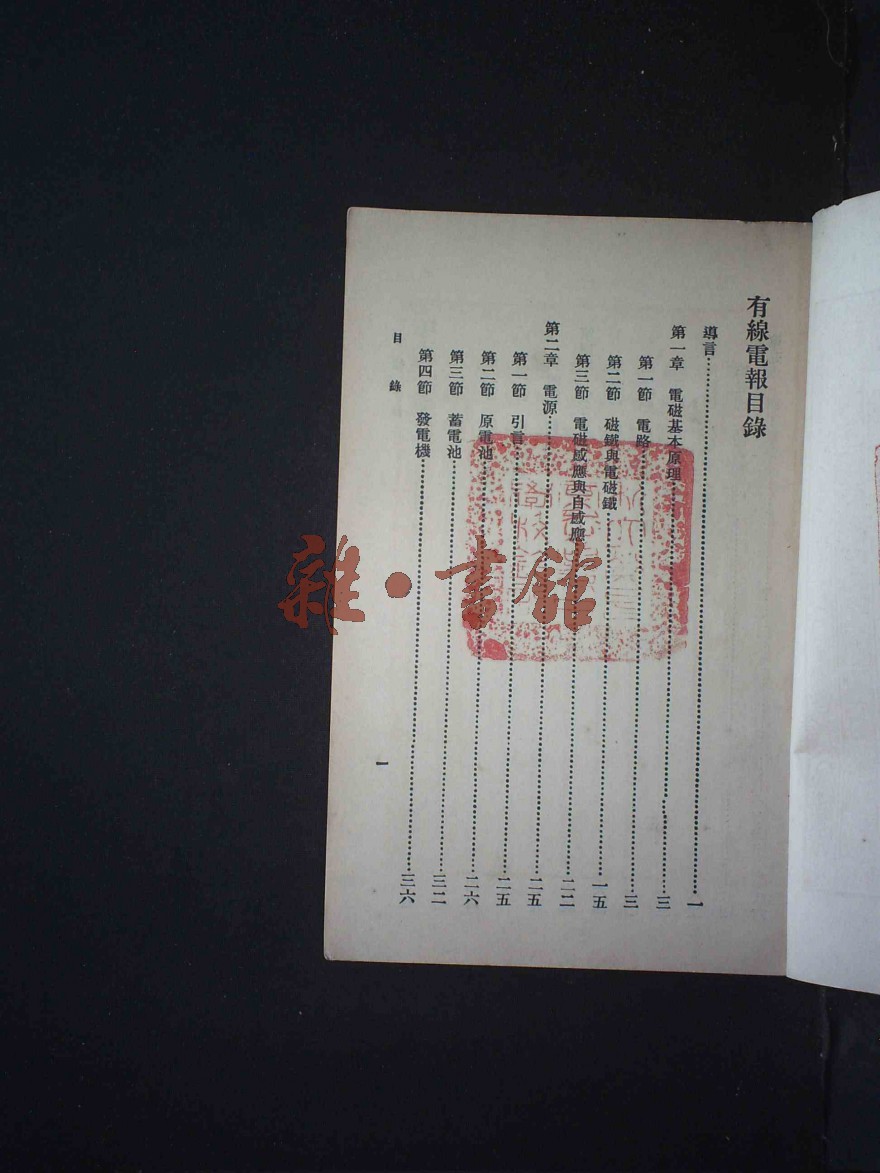 有線電報目錄
導言……一
第一章 電磁基本原理……三
第一節 電路……三
第二節 磁鐵與電磁鐵……一五
第三節 電磁感應與自感應……二二
第二章 電源……二五
第一節 引言……二五
第二節 原電池……二六
第三節 蓄電池……三二
第四節 發電機……三六
目錄
一
雜·書館